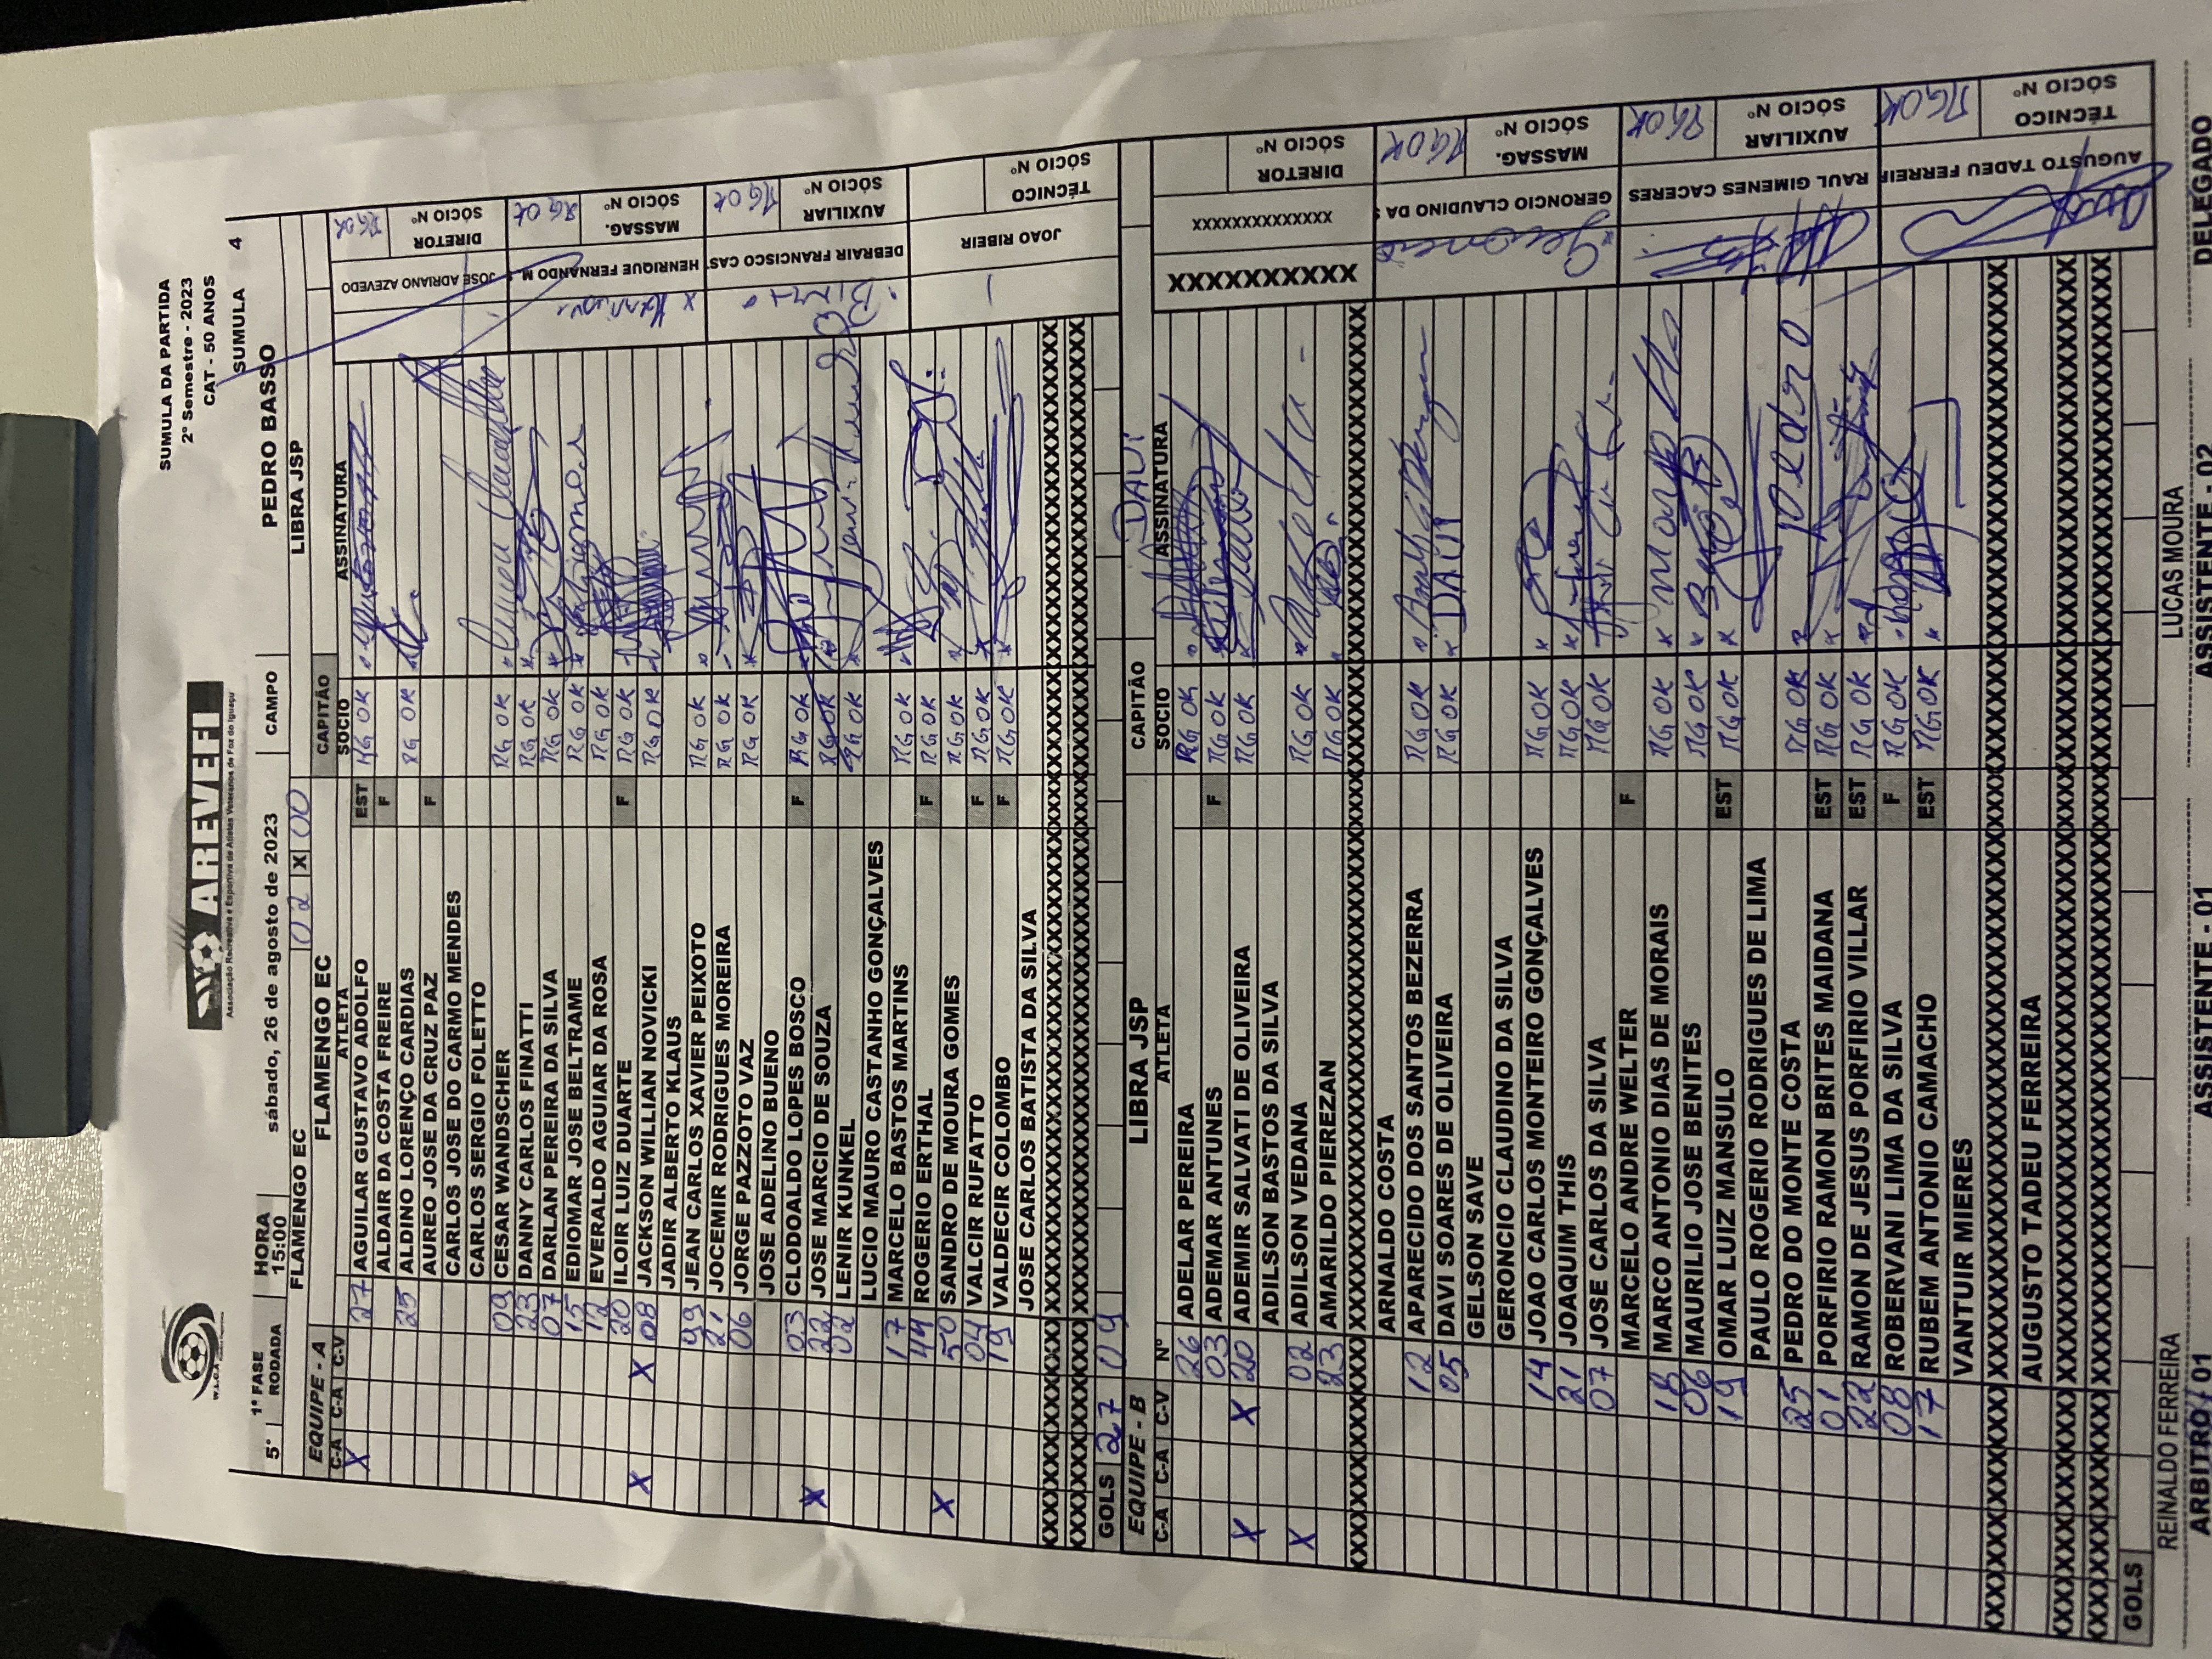 SUMULA DA PARTIDA
2º Semestre - 2023
CAT - 50 ANOS
SUMULA 4
AREVEFI
Associação Recreativa e Esportiva de Atletas Veteranos de Foz do Iguaçu
1ª FASE HORA
5ª RODADA 15:00 sábado, 26 de agosto de 2023 CAMPO PEDRO BASSO
FLAMENGO EC 02 X 00 LIBRA JSP
EQUIPE - A FLAMENGO EC CAPITÃO
C-A C-A C-V ATLETA SOCIO ASSINATURA
X 27 AGUILAR GUSTAVO ADOLFO EST RG OK
ALDAIR DA COSTA FREIRE F
25 ALDINO LORENÇO CARDIAS RG OK
AUREO JOSE DA CRUZ PAZ F
CARLOS JOSE DO CARMO MENDES
CARLOS SERGIO FOLETTO
09 CESAR WANDSCHER RG OK
23 DANNY CARLOS FINATTI RG OK
07 DARLAN PEREIRA DA SILVA RG OK
15 EDIOMAR JOSE BELTRAME RG OK
12 EVERALDO AGUIAR DA ROSA RG OK
20 ILOIR LUIZ DUARTE F RG OK
X X 08 JACKSON WILLIAN NOVICKI RG OK
JADIR ALBERTO KLAUS
99 JEAN CARLOS XAVIER PEIXOTO RG OK
21 JOCEMIR RODRIGUES MOREIRA RG OK
06 JORGE PAZZOTO VAZ RG OK
JOSE ADELINO BUENO
03 CLODOALDO LOPES BOSCO F RG OK
X 22 JOSE MARCIO DE SOUZA RG OK
02 LENIR KUNKEL RG OK
LUCIO MAURO CASTANHO GONÇALVES
17 MARCELO BASTOS MARTINS RG OK
44 ROGERIO ERTHAL F RG OK
X 50 SANDRO DE MOURA GOMES RG OK
04 VALCIR RUFATTO F RG OK
19 VALDECIR COLOMBO F RG OK
JOSE CARLOS BATISTA DA SILVA
GOLS 27 09
JOSE ADRIANO AZEVEDO RG OK DIRETOR SÓCIO Nº
HENRIQUE FERNANDO M. RG OK MASSAG. SÓCIO Nº
DEBRAIR FRANCISCO CAS RG OK AUXILIAR SÓCIO Nº
JOAO RIBEIR TÉCNICO SÓCIO Nº
EQUIPE - B LIBRA JSP CAPITÃO DAVI
C-A C-A C-V Nº ATLETA SOCIO ASSINATURA
26 ADELAR PEREIRA RG OK
03 ADEMAR ANTUNES F RG OK
X X 20 ADEMIR SALVATI DE OLIVEIRA RG OK
ADILSON BASTOS DA SILVA
X 02 ADILSON VEDANA RG OK
23 AMARILDO PIEREZAN RG OK
ARNALDO COSTA
12 APARECIDO DOS SANTOS BEZERRA RG OK
05 DAVI SOARES DE OLIVEIRA RG OK DAVI
GELSON SAVE
GERONCIO CLAUDINO DA SILVA
14 JOAO CARLOS MONTEIRO GONÇALVES RG OK
21 JOAQUIM THIS RG OK
07 JOSE CARLOS DA SILVA RG OK
MARCELO ANDRE WELTER F
18 MARCO ANTONIO DIAS DE MORAIS RG OK
06 MAURILIO JOSE BENITES RG OK
19 OMAR LUIZ MANSULO EST RG OK
PAULO ROGERIO RODRIGUES DE LIMA
25 PEDRO DO MONTE COSTA RG OK Pedro
01 PORFIRIO RAMON BRITES MAIDANA EST RG OK
22 RAMON DE JESUS PORFIRIO VILLAR EST RG OK
08 ROBERVANI LIMA DA SILVA F RG OK
17 RUBEM ANTONIO CAMACHO EST RG OK
VANTUIR MIERES
AUGUSTO TADEU FERREIRA
GOLS
XXXXXXXXXXX XXXXXXXXXXXXX DIRETOR SÓCIO Nº
Geroncio GERONCIO CLAUDINO DA S RG OK MASSAG. SÓCIO Nº
RAUL GIMENES CACERES RG OK AUXILIAR SÓCIO Nº
AUGUSTO TADEU FERREIR RG OK TÉCNICO SÓCIO Nº
REINALDO FERREIRA LUCAS MOURA
ARBITRO / 01 ASSISTENTE - 01 ASSISTENTE - 02 DELEGADO